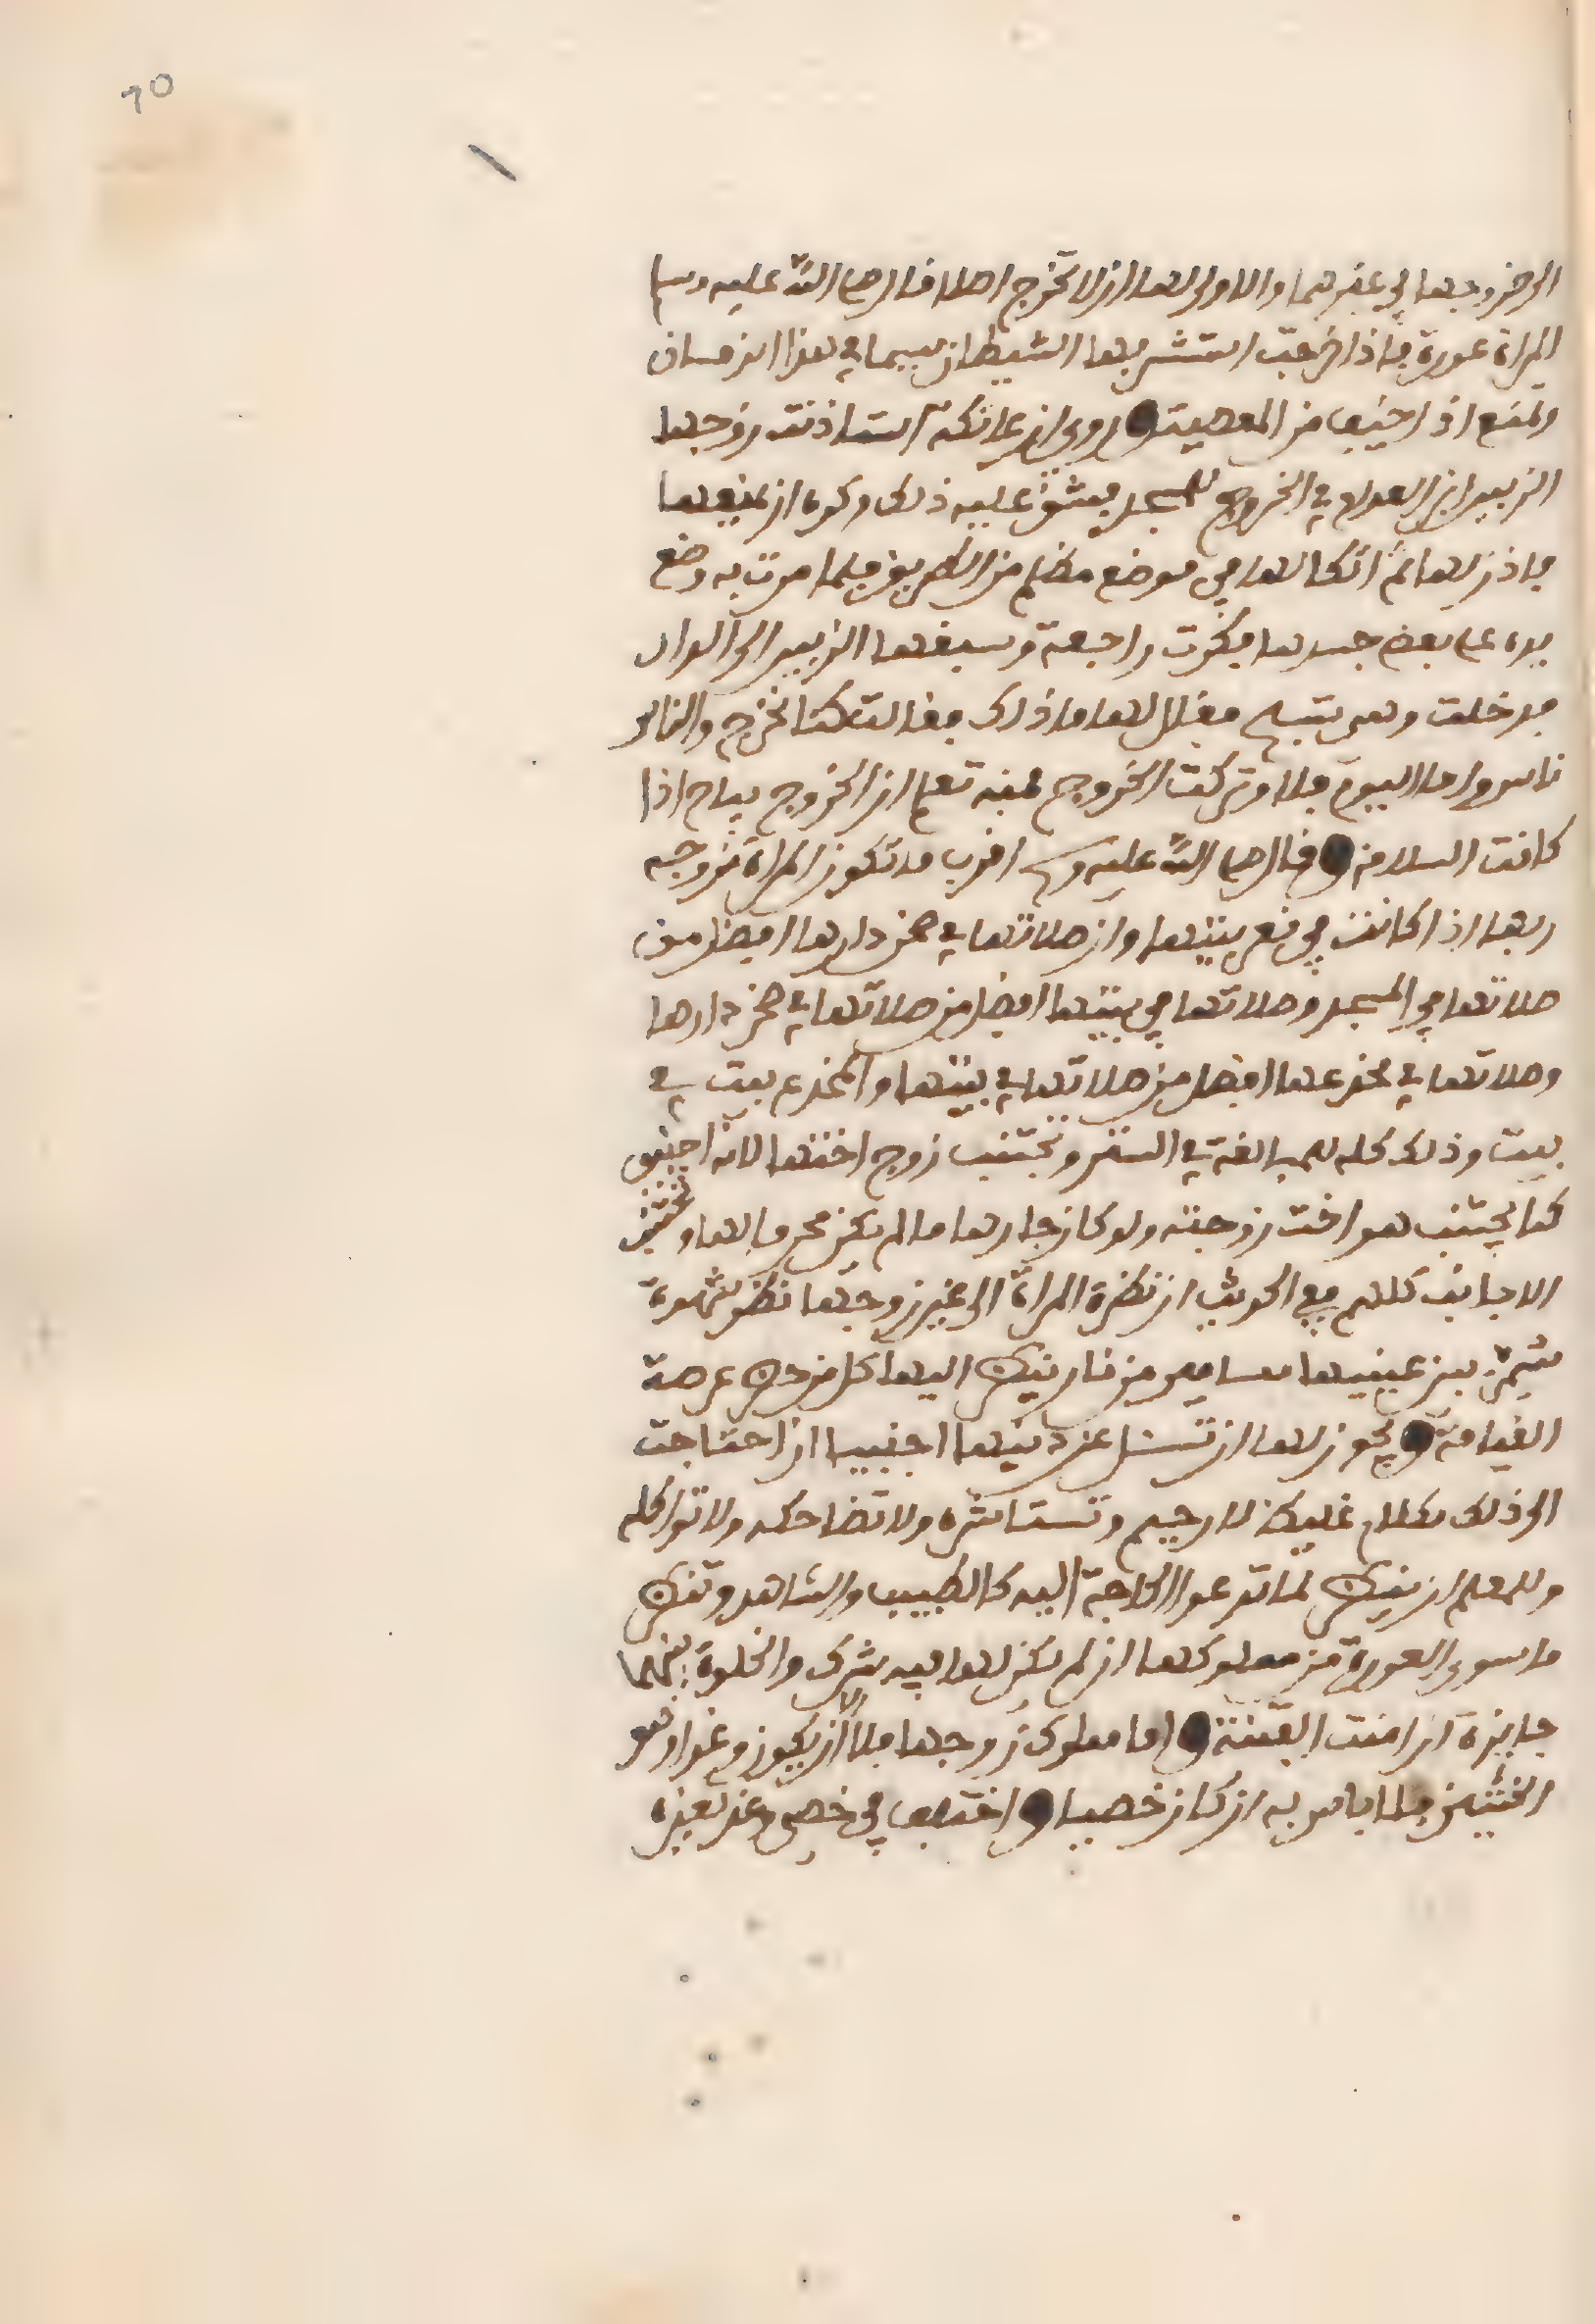 10
الى خروجها في غيرهما والاولى لها ان لا تخرج اصلا قال صلى الله عليه وسلم
المراة عورة فاذا خرجت استشر بها الشيطان سيما في هذا الزمان
ولتمنع اذ اخيف من المعصية وروي ان عاتكة استاذنت زوجها
الزبير ابن العوام في الخروج للمسجد فشق عليه ذلك وكره ان يمنعها
فاذن لها ثم اتكا لها في موضع مظلم من الطريق فلما مرت به وضع
يده على بعض جسدها فكرت راجعة وسبقها الزبير الى الدار
فدخلت وهي تسبح فقال لها ما ذلك فقالت كنا نخرج والناس
ناس واما اليوم فلا وتركت الخروج فمنه تعلم ان الخروج يباح اذا
كانت السلامة وقال صلى الله عليه وسلم اقرب ما تكون المراة من وجه
ربها اذا كانت في قعر بيتها وان صلاتها في صحن دارها افضل من
صلاتها في المسجد وصلاتها في بيتها افضل من صلاتها في صحن دارها
وصلاتها في مخدعها افضل من صلاتها في بيتها والمخدع بيت في
بيت وذلك كله للمبالغة في الستر وتجتنب زوج اختها لانه اجنبي
كما يجتنب هو اخت زوجته ولو كان جارها ما لم يكن محرما لها وتجتنب
الاجانب كلهم ففي الحديث ان نظرة المراة الى غير زوجها نظر شهوة
سمر بين عينيها مسامير من نار ينظر اليها كل من حضر عرصة
القيامة ويجوز لها ان تسئل عن دينها اجنبيا ان احتاجت
الى ذلك بكلام غليظ لا رخيم وتستاتره ولا تضاحكه ولا تواكله
وللمعلم ان ينظر لما تدعوا الحاجة اليه كالطبيب والشاهد وتنظر
ما سوى العورة من مملوكها ان لم يكن لها فيه شرك والخلوة بينهما
جايزة ان امنت الفتنة واما مملوك زوجها فلا الا ان يكون وغدا وهو
الخشين فلا باس به ان كان خصيا واختلف في خصي وغد لغيره